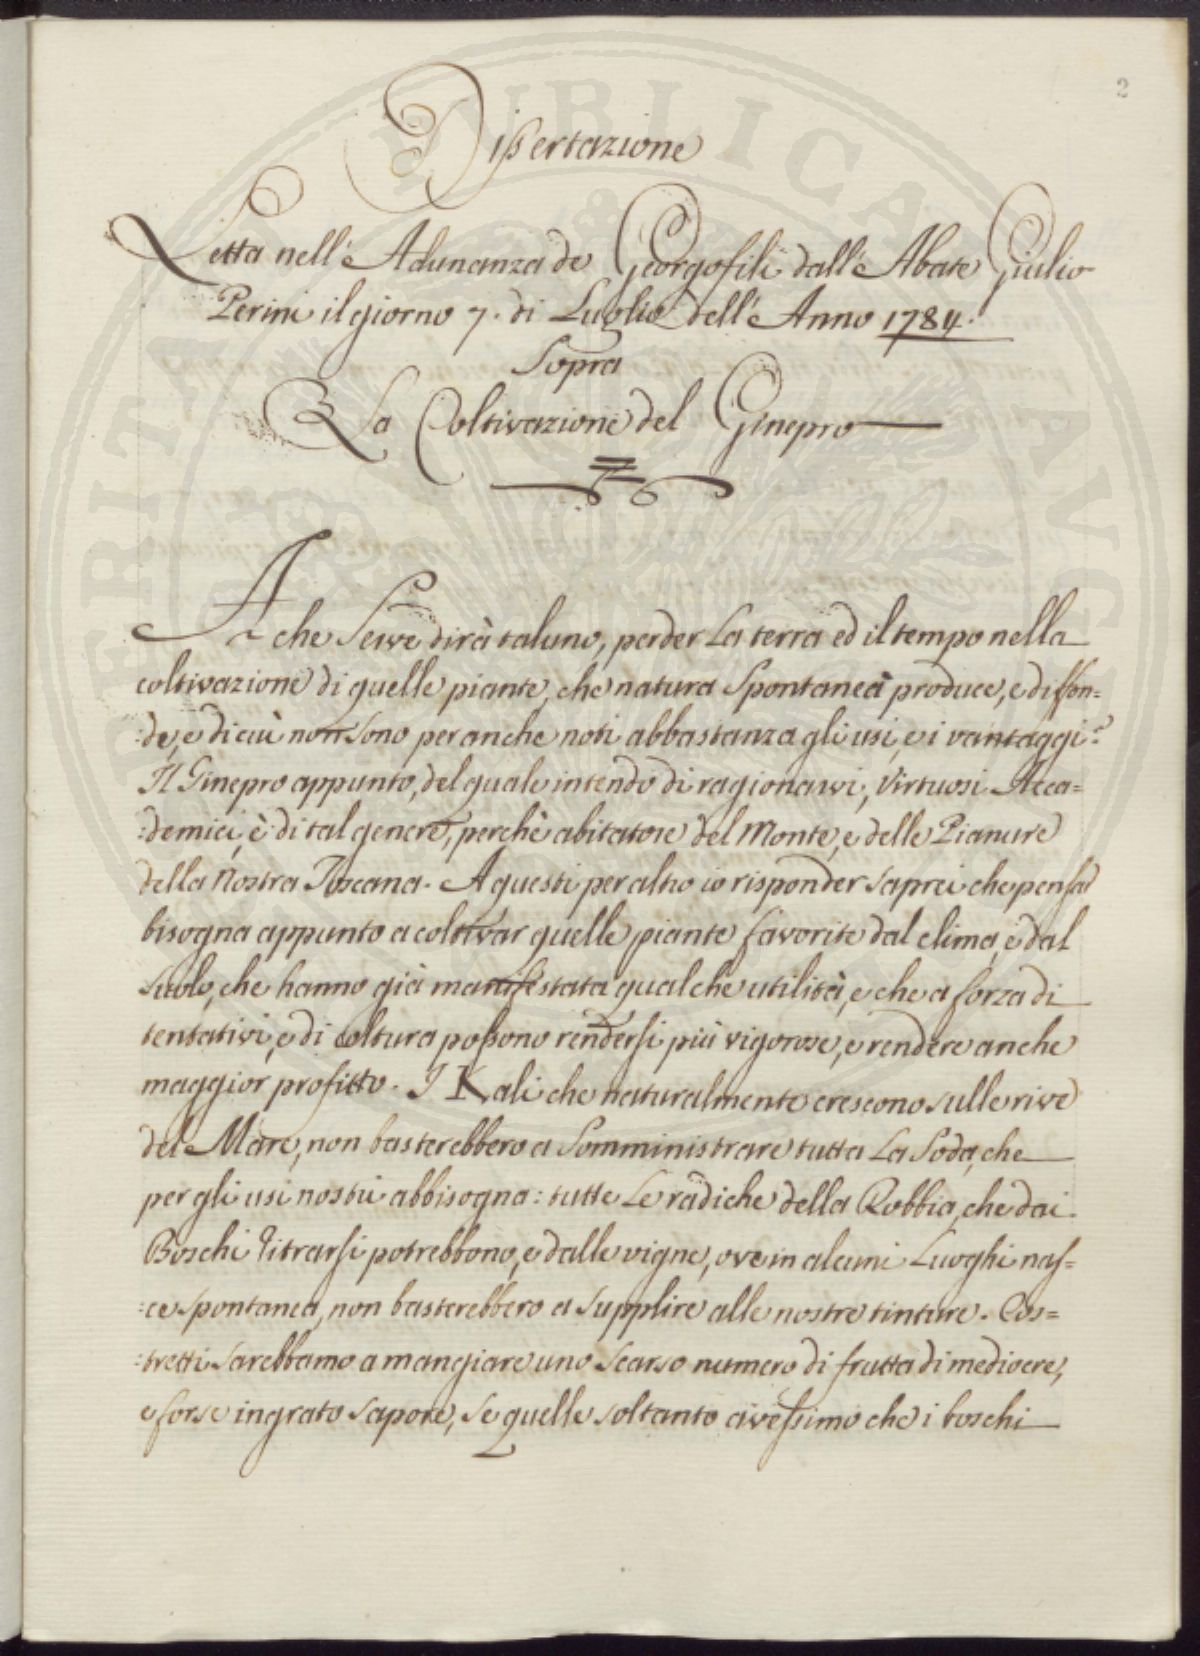 2
Dissertazione
Letta nell'Adunanza de Georgofili dall'Abate Giulio
Perini il giorno 7. di Luglio dell'Anno 1784.
Sopra
La Coltivazione del Ginepro
A che serve dirà taluno, perder La terra ed il tempo nella
coltivazione di quelle piante, che natura spontanea produce, e diffon=
:de, e di cui non sono per anche noti abbastanza gli usi, e i vantaggi?
Il Ginepro appunto, del quale intendo di ragionarvi, Virtuosi Acca=
:demici, è di tal genere, perchè abitatore del Monte, e delle Pianure
della Nostra Toscana. A questi per altro io risponder saprei che pensar
bisogna appunto a coltivar quelle piante favorite dal clima, e dal
suolo, che hanno già manifestata qualche utilità, e che a forza di
tentativi, e di coltura possono rendersi più vigorose, e rendere anche
maggior profitto. I Kali che naturalmente crescono sulle rive
del Mare, non basterebbero a somministrare tutta La Soda, che
per gli usi nostri abbisogna: tutte Le radiche della Robbia, che dai
Boschi Titrarsi potrebbono, e dalle vigne, ove in alcuni Luoghi nas=
:ce spontanea, non basterebbero a supplire alle nostre tinture. Cos=
:tretti sarebbamo a mangiare uno scarso numero di frutta di mediocre,
e forse ingrato sapore, se quelle soltanto avessimo che i boschi
PUBLICAE
PROSPERITATI AUGENDAE